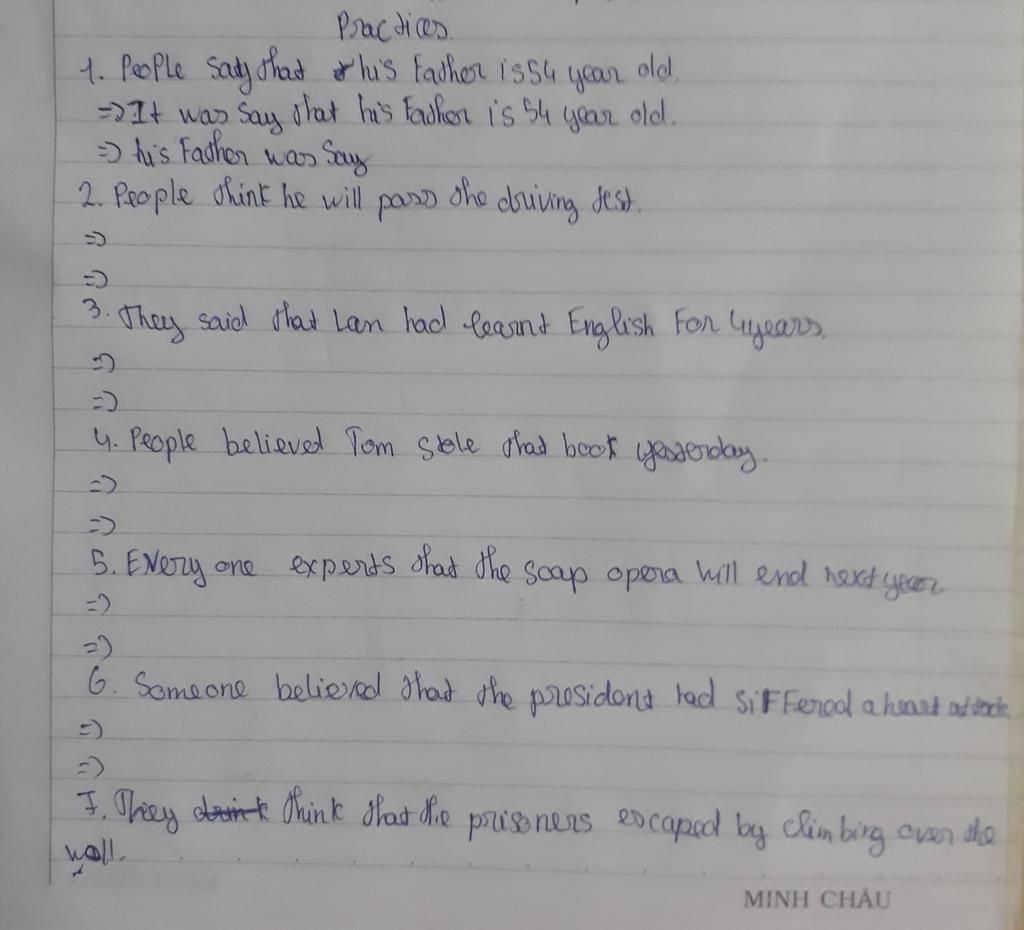 Practices.
1. People say that his Father is 54 year old.
=> It was say that his Father is 54 year old.
=> his Father was say
2. People think he will pass the driving test.
=>
=>
3. They said that Lan had learnt English For 4 years.
=>
=>
4. People believed Tom stole that book yesterday.
=>
=>
5. Every one experts that the soap opera will end next year
=>
=>
6. Someone believed that the president had siffered a heart attack
=>
=>
7. They think that the prisoners escaped by climbing over the
wall.
MINH CHÂU